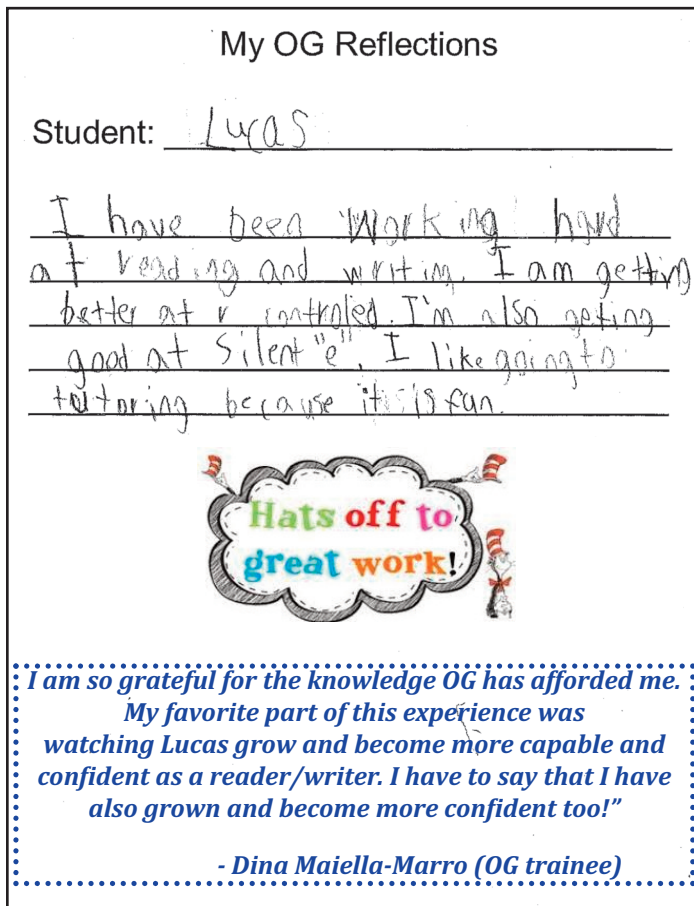 My OG Reflections
Student: Lucas
I have been working hard
at reading and writing. I am getting
better at r controled. I'm also getting
good at silent "e". I like going to
tutoring because it is fun.
Hats off to
great work!
I am so grateful for the knowledge OG has afforded me.
My favorite part of this experience was
watching Lucas grow and become more capable and
confident as a reader/writer. I have to say that I have
also grown and become more confident too!”
- Dina Maiella-Marro (OG trainee)